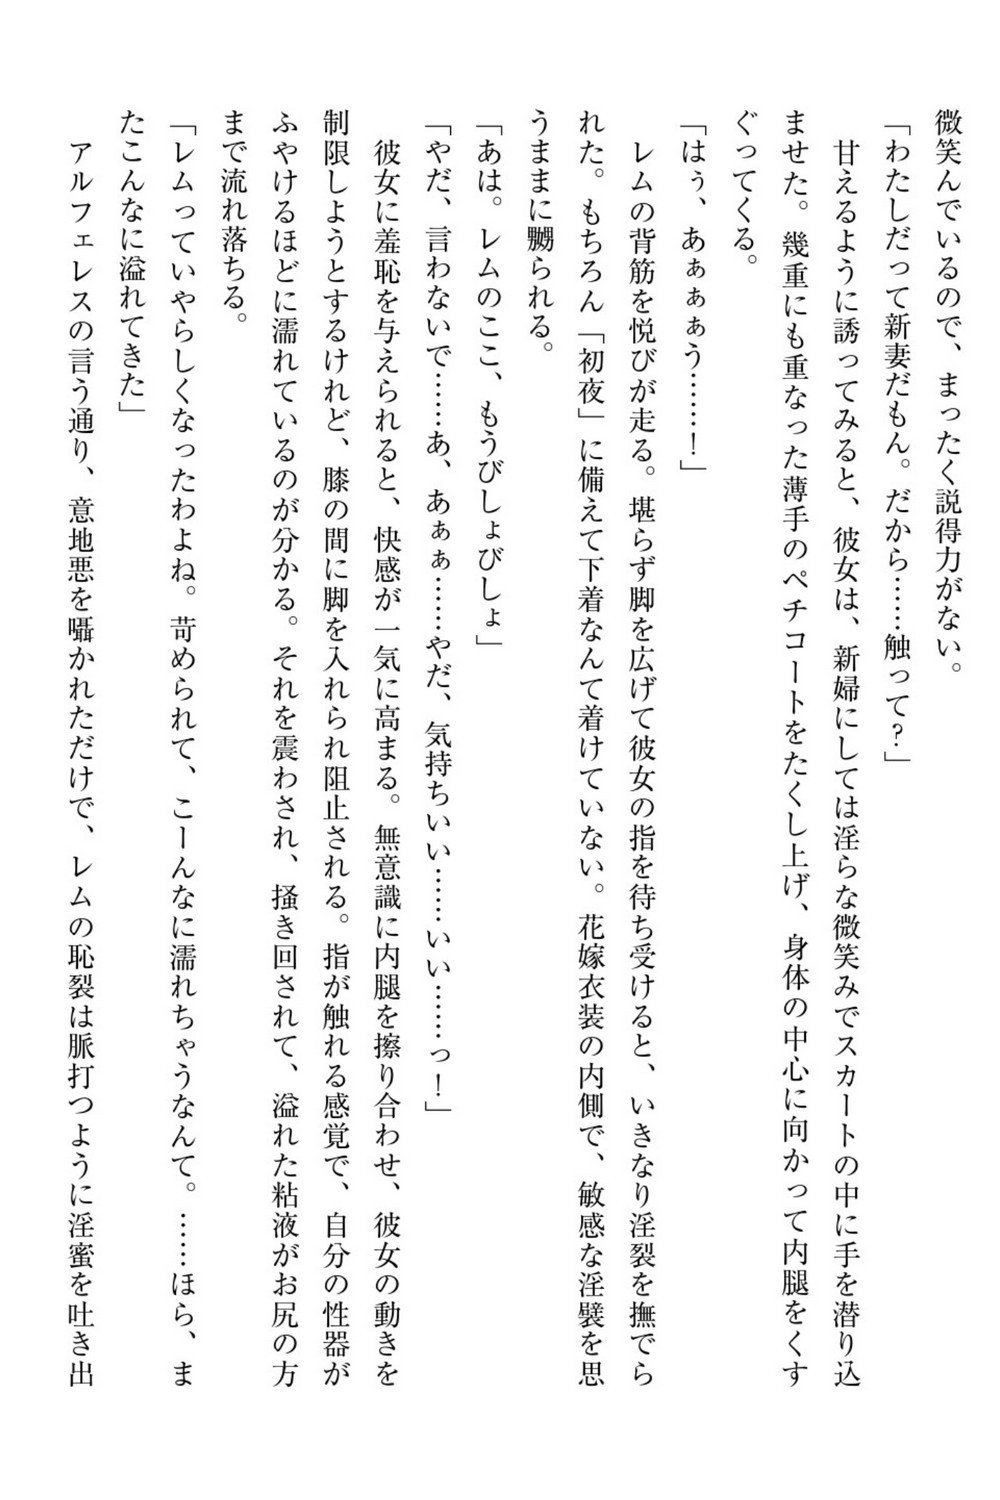 微笑んでいるので、まったく説得力がない。
「わたしだって新妻だもん。だから……触って?」
甘えるように誘ってみると、彼女は、新婦にしては淫らな微笑みでスカートの中に手を潜り込
ませた。幾重にも重なった薄手のペチコートをたくし上げ、身体の中心に向かって内腿をくす
ぐってくる。
「はぅ、あぁぁぁう……！」
レムの背筋を悦びが走る。堪らず脚を広げて彼女の指を待ち受けると、いきなり淫裂を撫でら
れた。もちろん「初夜」に備えて下着なんて着けていない。花嫁衣装の内側で、敏感な淫襞を思
うままに嬲られる。
「あは。レムのここ、もうびしょびしょ」
「やだ、言わないで……あ、あぁぁ……やだ、気持ちいい……いい……っ！」
彼女に羞恥を与えられると、快感が一気に高まる。無意識に内腿を擦り合わせ、彼女の動きを
制限しようとするけれど、膝の間に脚を入れられ阻止される。指が触れる感覚で、自分の性器が
ふやけるほどに濡れているのが分かる。それを震わされ、掻き回されて、溢れた粘液がお尻の方
まで流れ落ちる。
「レムっていやらしくなったわよね。苛められて、こーんなに濡れちゃうなんて。……ほら、ま
たこんなに溢れてきた」
アルフェレスの言う通り、意地悪を囁かれただけで、レムの恥裂は脈打つように淫蜜を吐き出